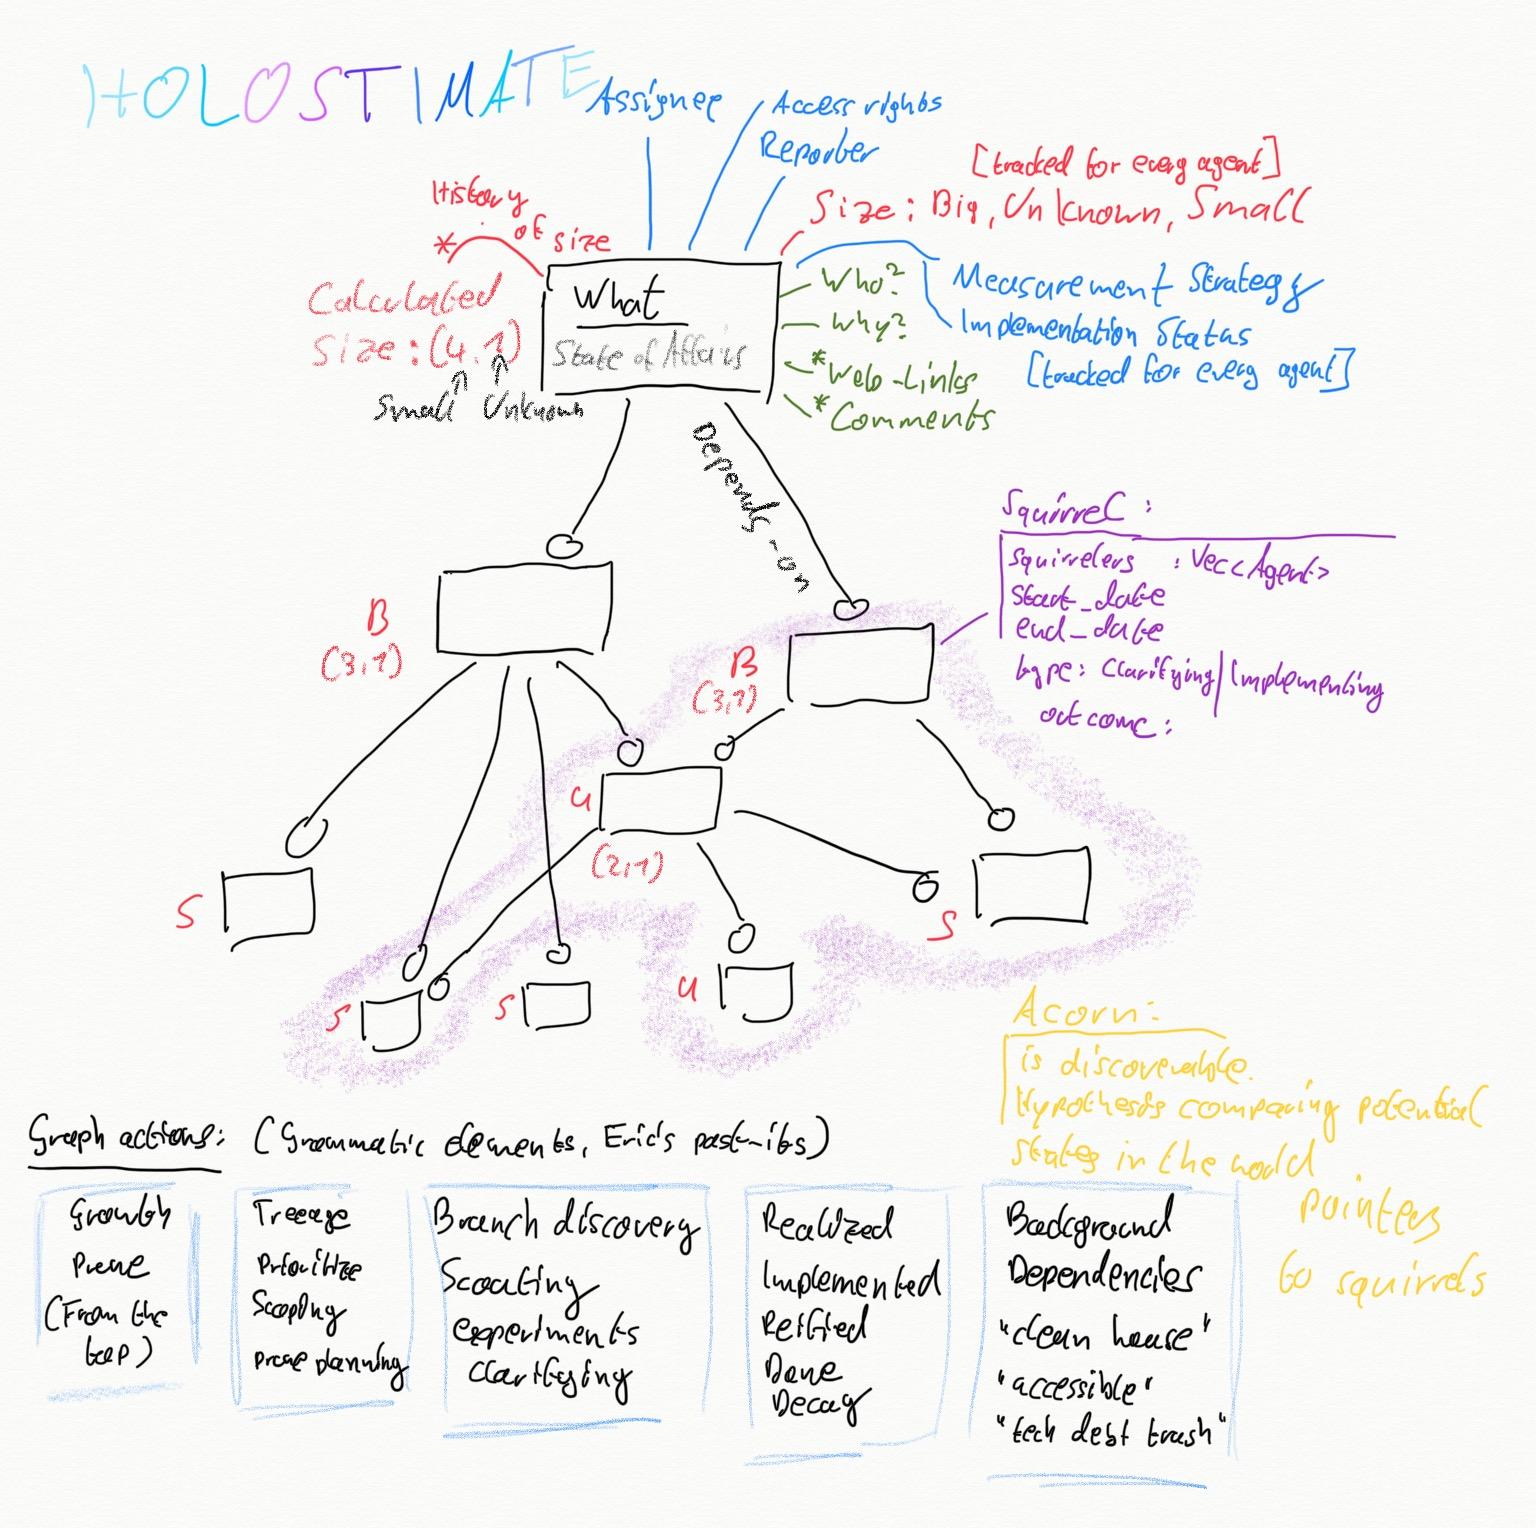 HOLOSTIMATE
Assignee
Access rights
Reporter
[tracked for every agent]
Size: Big, Unknown, Small
History
of size
*
Calculated
Size: (4,1)
Small Unknown
What
State of Affairs
Who?
Why?
*Web-Links
*Comments
Measurement Strategy
Implementation Status
[tracked for every agent]
Depends-on
Squirrel:
Squirrelers : Vec<Agent>
start_date
end_date
type: Clarifying/Implementing
outcome:
B
(3,1)
B
(3,1)
U
(2,1)
S
S
S
U
S
Acorn:
is discoverable.
Hypothesis comparing potential
states in the world
pointers
to squirrels
Graph actions: (Grammatic elements, Eric's post-its)
Growth
Prune
(From the
top)
Treeage
Prioritize
Scoping
prune planning
Branch discovery
Scouting
experiments
Clarifying
Realized
Implemented
Reified
Done
Decay
Background
Dependencies
"clean house"
"accessible"
"tech debt trash"